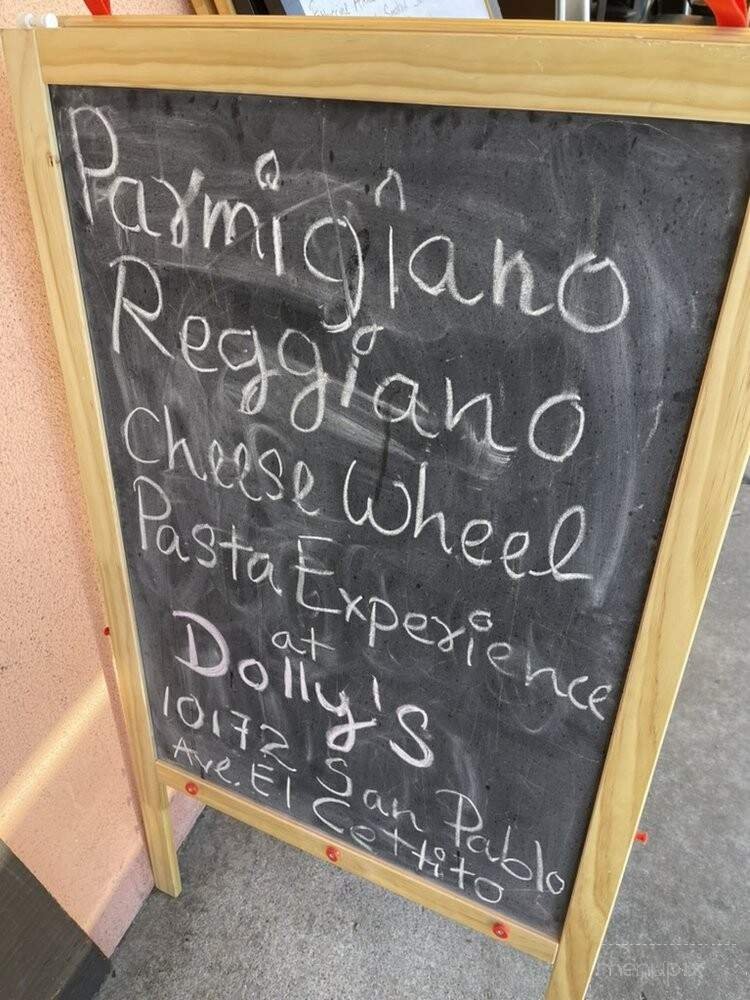 Parmigiano
Reggiano
Cheese Wheel
Pasta Experience
at
Dolly's
10172 San Pablo
Ave. El Cerrito
menupix